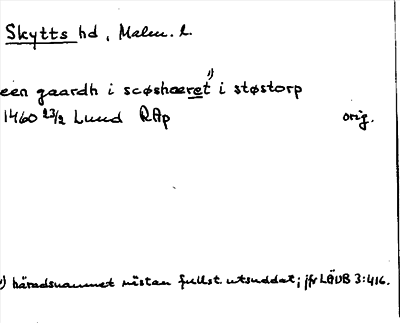 Skytts hd, Malm. l.
een gaardh i scøshæret ¹) i støstorp
1460 23/2 Lund RAp orig.
¹) häradsnamnet nästan fullst. utsuddat; jfr LÄUB 3:416.